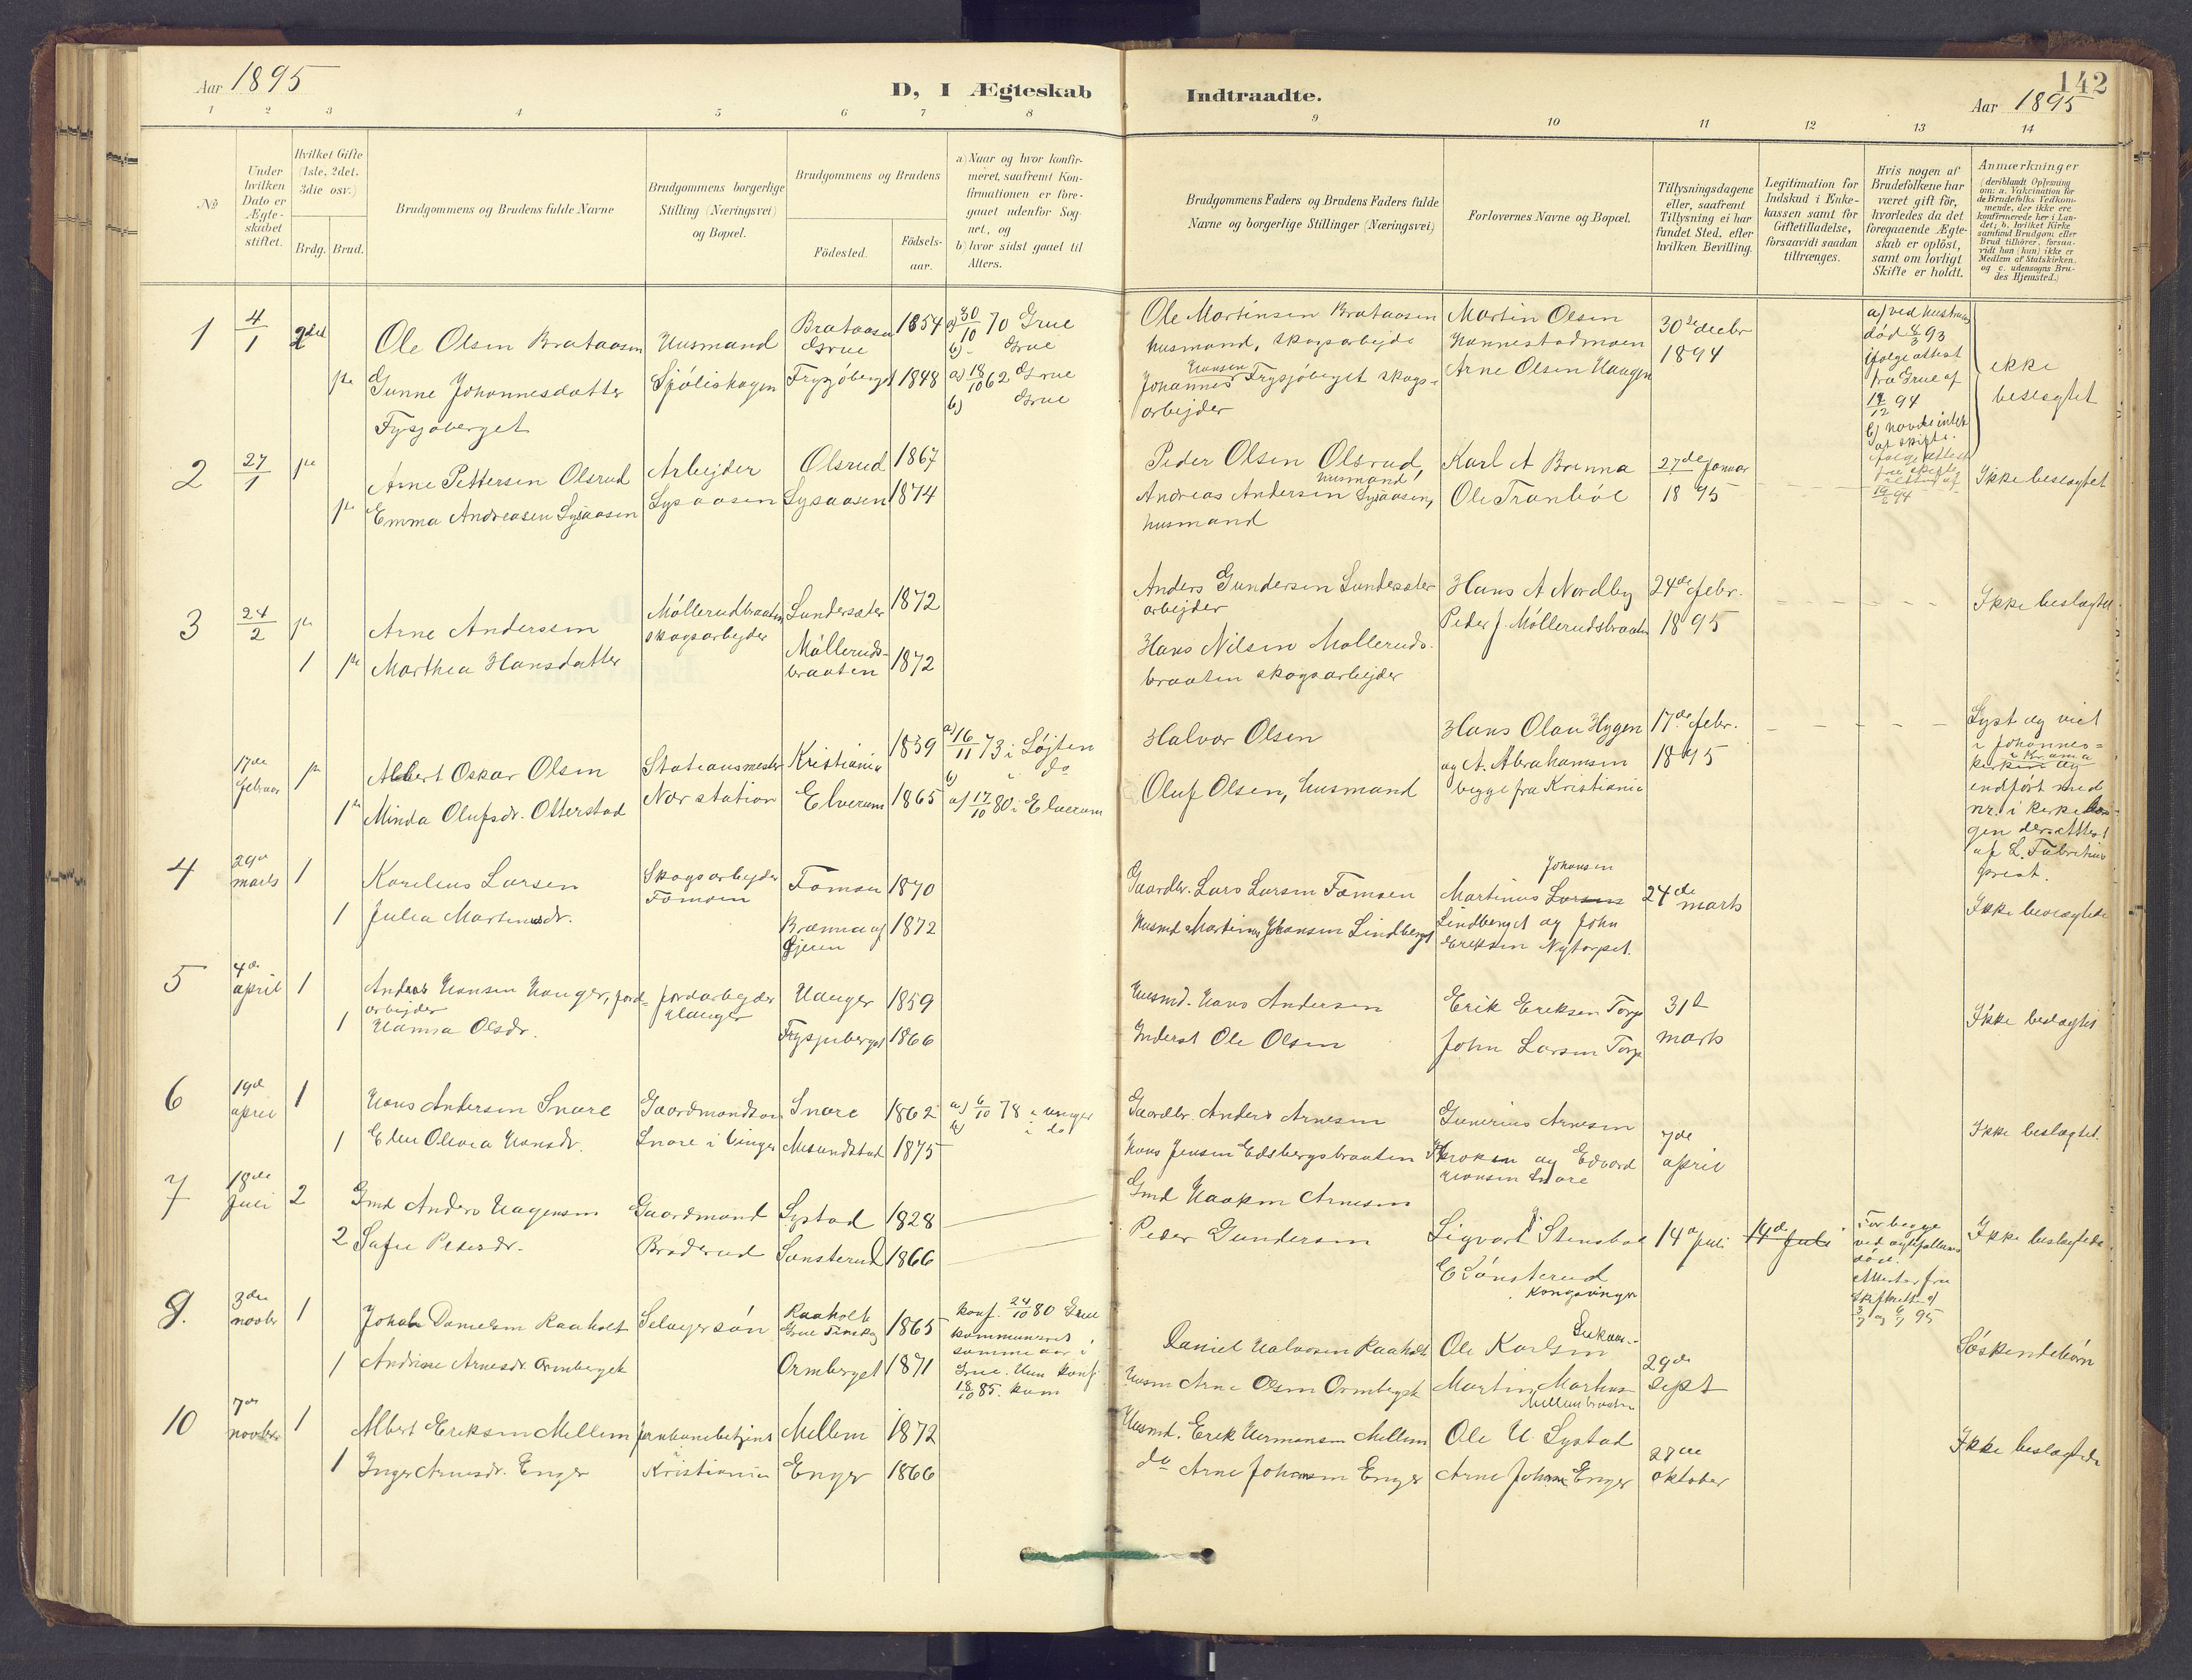 Aar 1895
D, I Ægteskab Indtraadte.
142
Aar 1895
1 2 3 4 5 6 7 8 9 10 11 12 13 14
№
Under hvilken Dato er Ægteskabet stiftet.
Hvilket Gifte (1ste, 2det, 3die osv.)
Brdg. Brud.
Brudgommens og Brudens fulde Navne
Brudgommens borgerlige Stilling (Næringsvei) og Bopæl.
Brudgommens og Brudens
Födested. Födsels-aar.
a) Naar og hvor konfir-
meret, saafremt Kon-
firmationen er fore-
gaaet udenfor Sog-
net, og
b) hvor sidst gaaet til
Alters.
Brudgommens Faders og Brudens Faders fulde
Navne og borgerlige Stillinger (Næringsvei)
Forlovernes Navne og Bopæl.
Tillysningsdagene
eller, saafremt
Tillysning ei har
fundet Sted, efter
hvilken Bevilling.
Legitimation for
Indskud i Enke-
kassen samt for
Giftetilladelse,
forsaavidt saadan
tiltrænges.
Hvis nogen af
Brudefolkene har
været gift för,
hvorledes da det
foregaaende Ægte-
skab er oplöst,
samt om lovligt
Skifte er holdt.
Anmærkninger
(deriblandt Oplysning
om: a. Vakcination for
de Brudefolks Vedkom-
mende, der ikke ere
konfirmerede her i Lan-
det; b. hvilket Kirke
samfund Brudgom eller
Brud tilhörer, forsaa-
vidt han (hun) ikke er
Medlem af Statskirken,
og c. udensogns Bru-
des Hjemsted.)
1 4/1 2det Ole Olsen Brataasen Husmand Brataasen Grue 1854 a) 30/10 70 Grue b) - Grue
Ole Martinsen Brataasen husmand, skogsarbejde
Martin Olsen Hannestadmoen
30te decbr 1894
a) ved hustruens
død 8/3 93
ifølge attest
fra Grue af
19/12 94
ikke beslegtet
Gunne Johannesdatter Frysjøberget Sjöliskogen Frysjöberget 1848 a) 18/10 62 Grue b) Grue
Johannes Hansen Frysjøberget skogs-
arbejder
Arne Olsen Haugen
2 27/1 Arne Pettersen Olsrud Arbejder Olsrud 1867
Peder Olsen Olsrud, husmand
Karl A Brenna 27de Januar 1895
Ikke beslegtet
Emma Andreasen Lysaasen Lysaasen Lysaasen 1874
Andreas Andersen Lysaasen, husmand
Ole Tranböl
3 24/2 Arne Anderssen Möllerudbraaten skogsarbejder Lundersæter 1872
Anders Gundersen Lundersæter arbejder
Hans A Nordby 24de febr. 1895
Ikke beslægtet
1 Marthea Hansdatter Mölleruds-braaten 1872
Hans Nilsen Mölleruds-
braaten skogsarbejder
Peder J. Möllerudsbraaten
17de februar Albert Oskar Olsen Stationsmester Kristiania 1839 a) 16/11 73 i Löjten b) i do
Halvor Olsen
Hans Olau Hygen 17de febr. 1895
Lyst og viet
i Johannes-
kirken i Kr.ania og
endført med
nr. 1 i kirkebo-
gen der. attest
af L. Fabritius
prest.
Minda Olufsdr. Otterstad Nor station Elverum 1865 a) 17/10 80 i Elverum
Oluf Olsen, husmand
og A. Abrahamsen begge fra Kristiania
4 29de marts 1 Karelius Larsen Skogsarbejder Tomsen 1870
Gaardbr. Lars Larsen Tomsen
Martinus Johansen Lindberget og John Eriksen Nytorpet.
24de marts
Ikke beslægtede
1 Julia Martinusdr. Brænna af Gjeren 1872
Husmd Martinus Johansen Lindberget
5 4de april 1 Andreas Hansen Hauger, jord-
arbejder jordarbejder Hauger Hauger 1859
Husmd. Hans Andersen
Erik Eriksen Torp 31te marts
Ikke beslægtet
1 Hanna Olsdr. Frysjuberget 1866
Inderst Ole Olsen
John Larsen Torp
6 19de april 1 Hans Andersen Snare Gaardmandssøn Snare 1862 a) 6/10 78 i Vinger b) i do
Gaardbr. Anders Arnesen
Gunerius Arnesen 7de april
Ikke beslægtet.
1 Elen Olivia Hansdr. Snare i Vinger Mesundstad 1875
Hans Jensen Edsbergsbraaten
og Edvard Hansen Snare
7 18de Juli 2 Gmd Anders Haagensen Gaardmand Systad 1828
Gmd Haaken Arnesen
Sigvart Stensbøl 14de Juli 14de Juli
For begge
ved ægtefællens
död.
Attester fra
Skifteretten af
3/7 og 6/7 95
Ikke beslægtede
2 Safie Pedersdr. Bröderud Sönsterud 1866
Peder Gundersen
E Sönsterud Kongsvinger
9. 3die novbr 1 Johan Danielsen Raaholt Selvejersön Raaholt Grue Finskog 1865
konf. 24/10 80 Grue
kommuneret
samme aar i
Grue. Hun konf.
18/10 85. kom
Daniel Halvorsen Raaholt
Ole Karlsen 29de sept
Söskendebörn
1 Andrine Arnesdr. Ormberget Ormberget 1871
Husm Arne Olsen Ormberget
Martin Markus
10 7de novbr 1 Albert Eriksen Mellem jernbanebetjent Mellem 1872
Husmd. Erik Hermansen Mellem
Ole H. Systad 28de oktober
Ikke beslægtede
1 Inger Arnesdr. Enger Kristiania Enger 1866
do Arne Johansen Enger
Arne Johnsen Enger